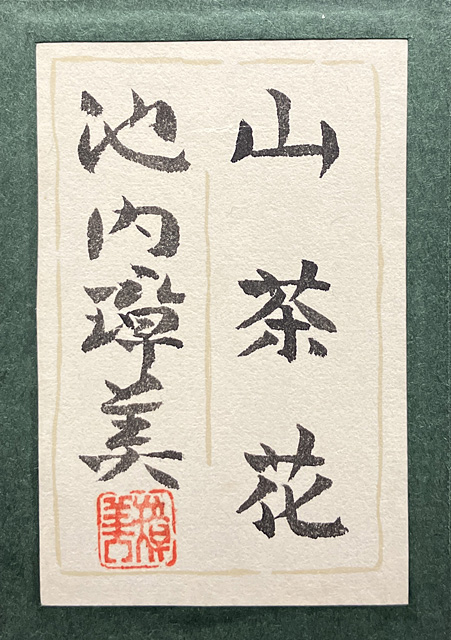 山茶花
池内璋美
璋美